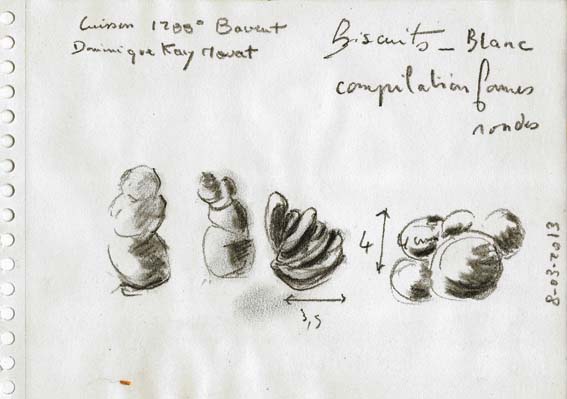 Cuisson 1200° Bavent
Dominique Kay Mouat
Biscuits _ Blanc
compilation formes
rondes
4
3,5
8-03-2013